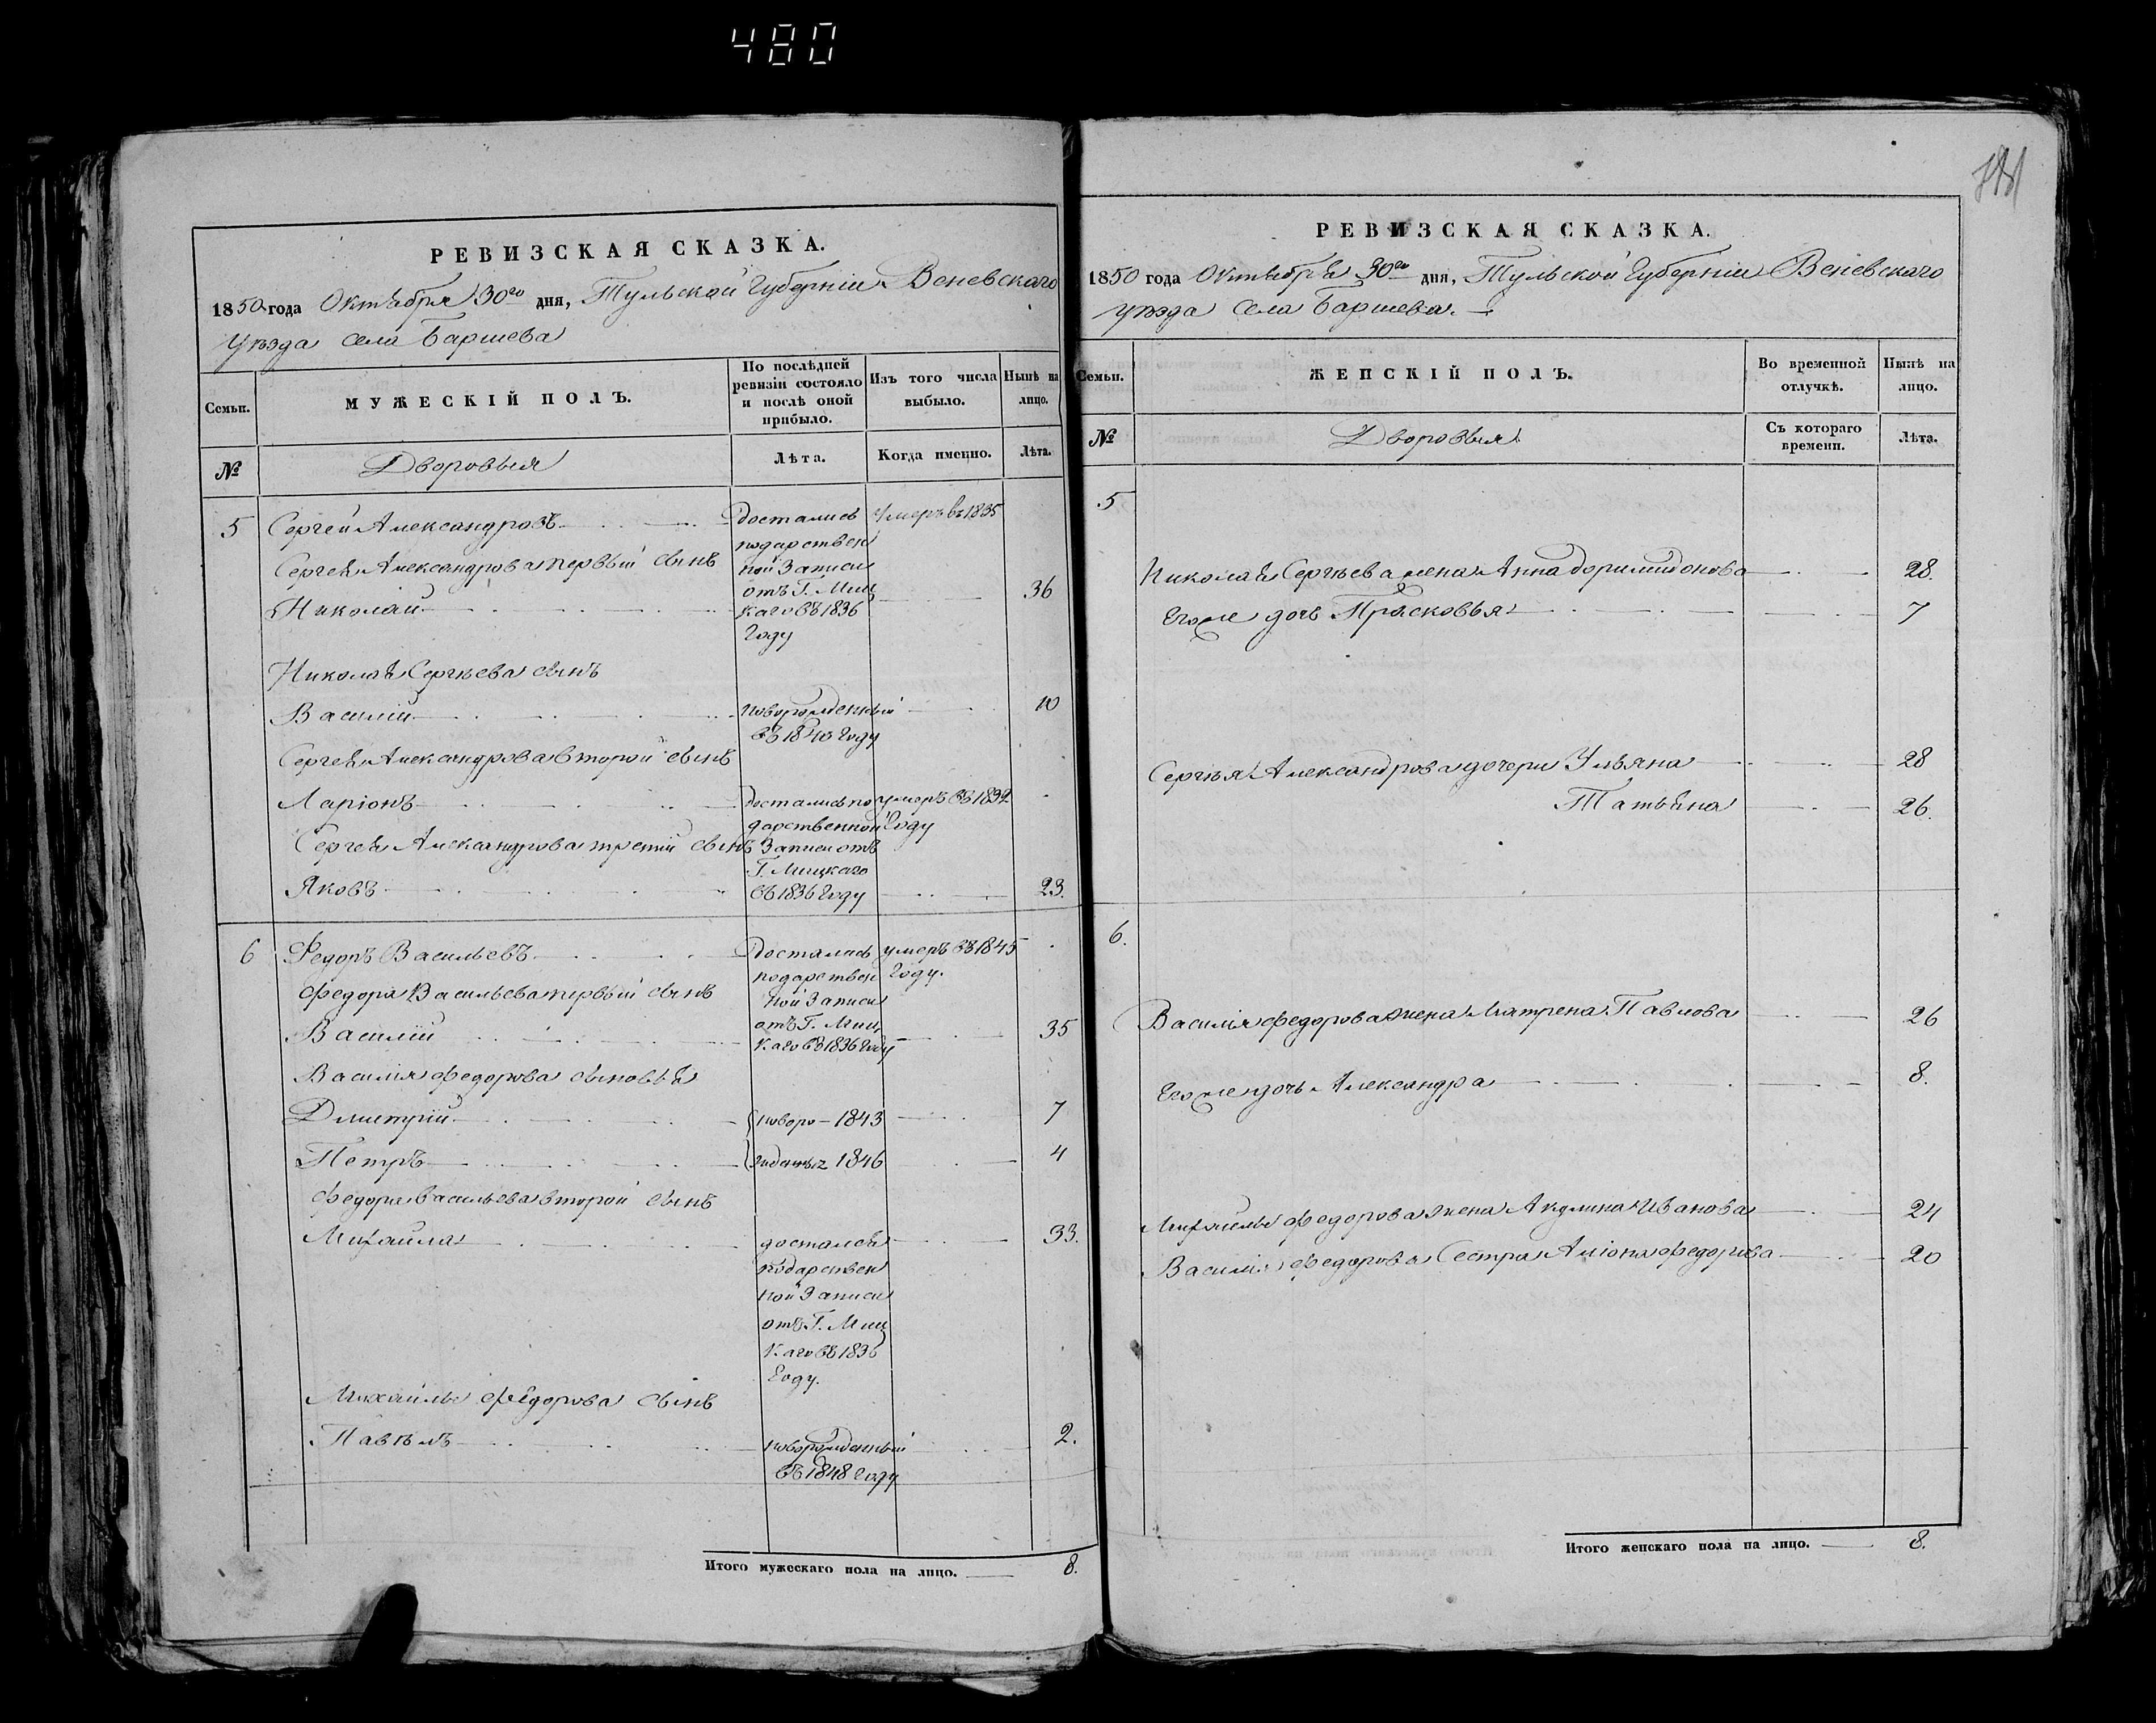 480
РЕВИЗСКАЯ СКАЗКА.
1850 года Октября 30го дня, Тульской Губерніи Веневскаго
Уѣзда села Баршева
Семьи.
МУЖЕСКІЙ ПОЛЪ.
По послѣдней ревизіи состояло и послѣ оной прибыло.
Изъ того числа выбыло.
Нынѣ на лицо.
№
Дворовыя
Лѣта.
Когда именно.
Лѣта.
5 Сергей Александровъ Достались Умеръ въ 1835
подарствен
Сергея Александрова первый сынъ ной Записи
отъ Г. Миц
Николай каго въ 1836 36
Году
Николая Сергѣева сынъ
Василій новорожденный 10
въ 1840 Году
Сергея Александрова второй сынъ
Ларіонъ достались по умеръ въ 1832
дарственной Году
Сергея Александрова третій сынъ Записи отъ
Г. Мицкаго
Яковъ въ 1836 Году 23.
6 Федоръ Васильевъ Достались умеръ въ 1845
подарствен Году.
Федора Васильева первый сынъ ной Записи
отъ Г. Миц
Василій каго въ 1836 Году 35
Василія Федорова сыновья
Дмитрій новоро- 1843 7
Петръ жденны 1846 4
Федора Васильева второй сынъ
Михаила достался 33.
подарствен
ной Записи
отъ Г. Миц
каго въ 1836
Году.
Михайлы Федорова сынъ
Павелъ новорожденный 2.
въ 1848 Году
Итого мужескаго пола на лицо. 8.
РЕВИЗСКАЯ СКАЗКА.
1850 года Октября 30го дня, Тульской Губерніи Веневскаго
уѣзда села Баршева.
Семьи.
ЖЕНСКІЙ ПОЛЪ.
Во временной отлучкѣ.
Нынѣ на лицо.
№
Дворовыя
Съ котораго времени.
Лѣта.
5
Николая Сергѣева жена Анна Доримидонова 28.
Его же дочь Прасковья 7
Сергѣя Александрова дочери Ульяна 28
Татьяна 26.
6.
Василія Федорова жена Матрена Павлова 26
Его же дочь Александра 8.
Михайлы Федорова жена Акулина Иванова 24
Василія Федорова Сестра Алiона Федорова 20
Итого женскаго пола на лицо. 8.